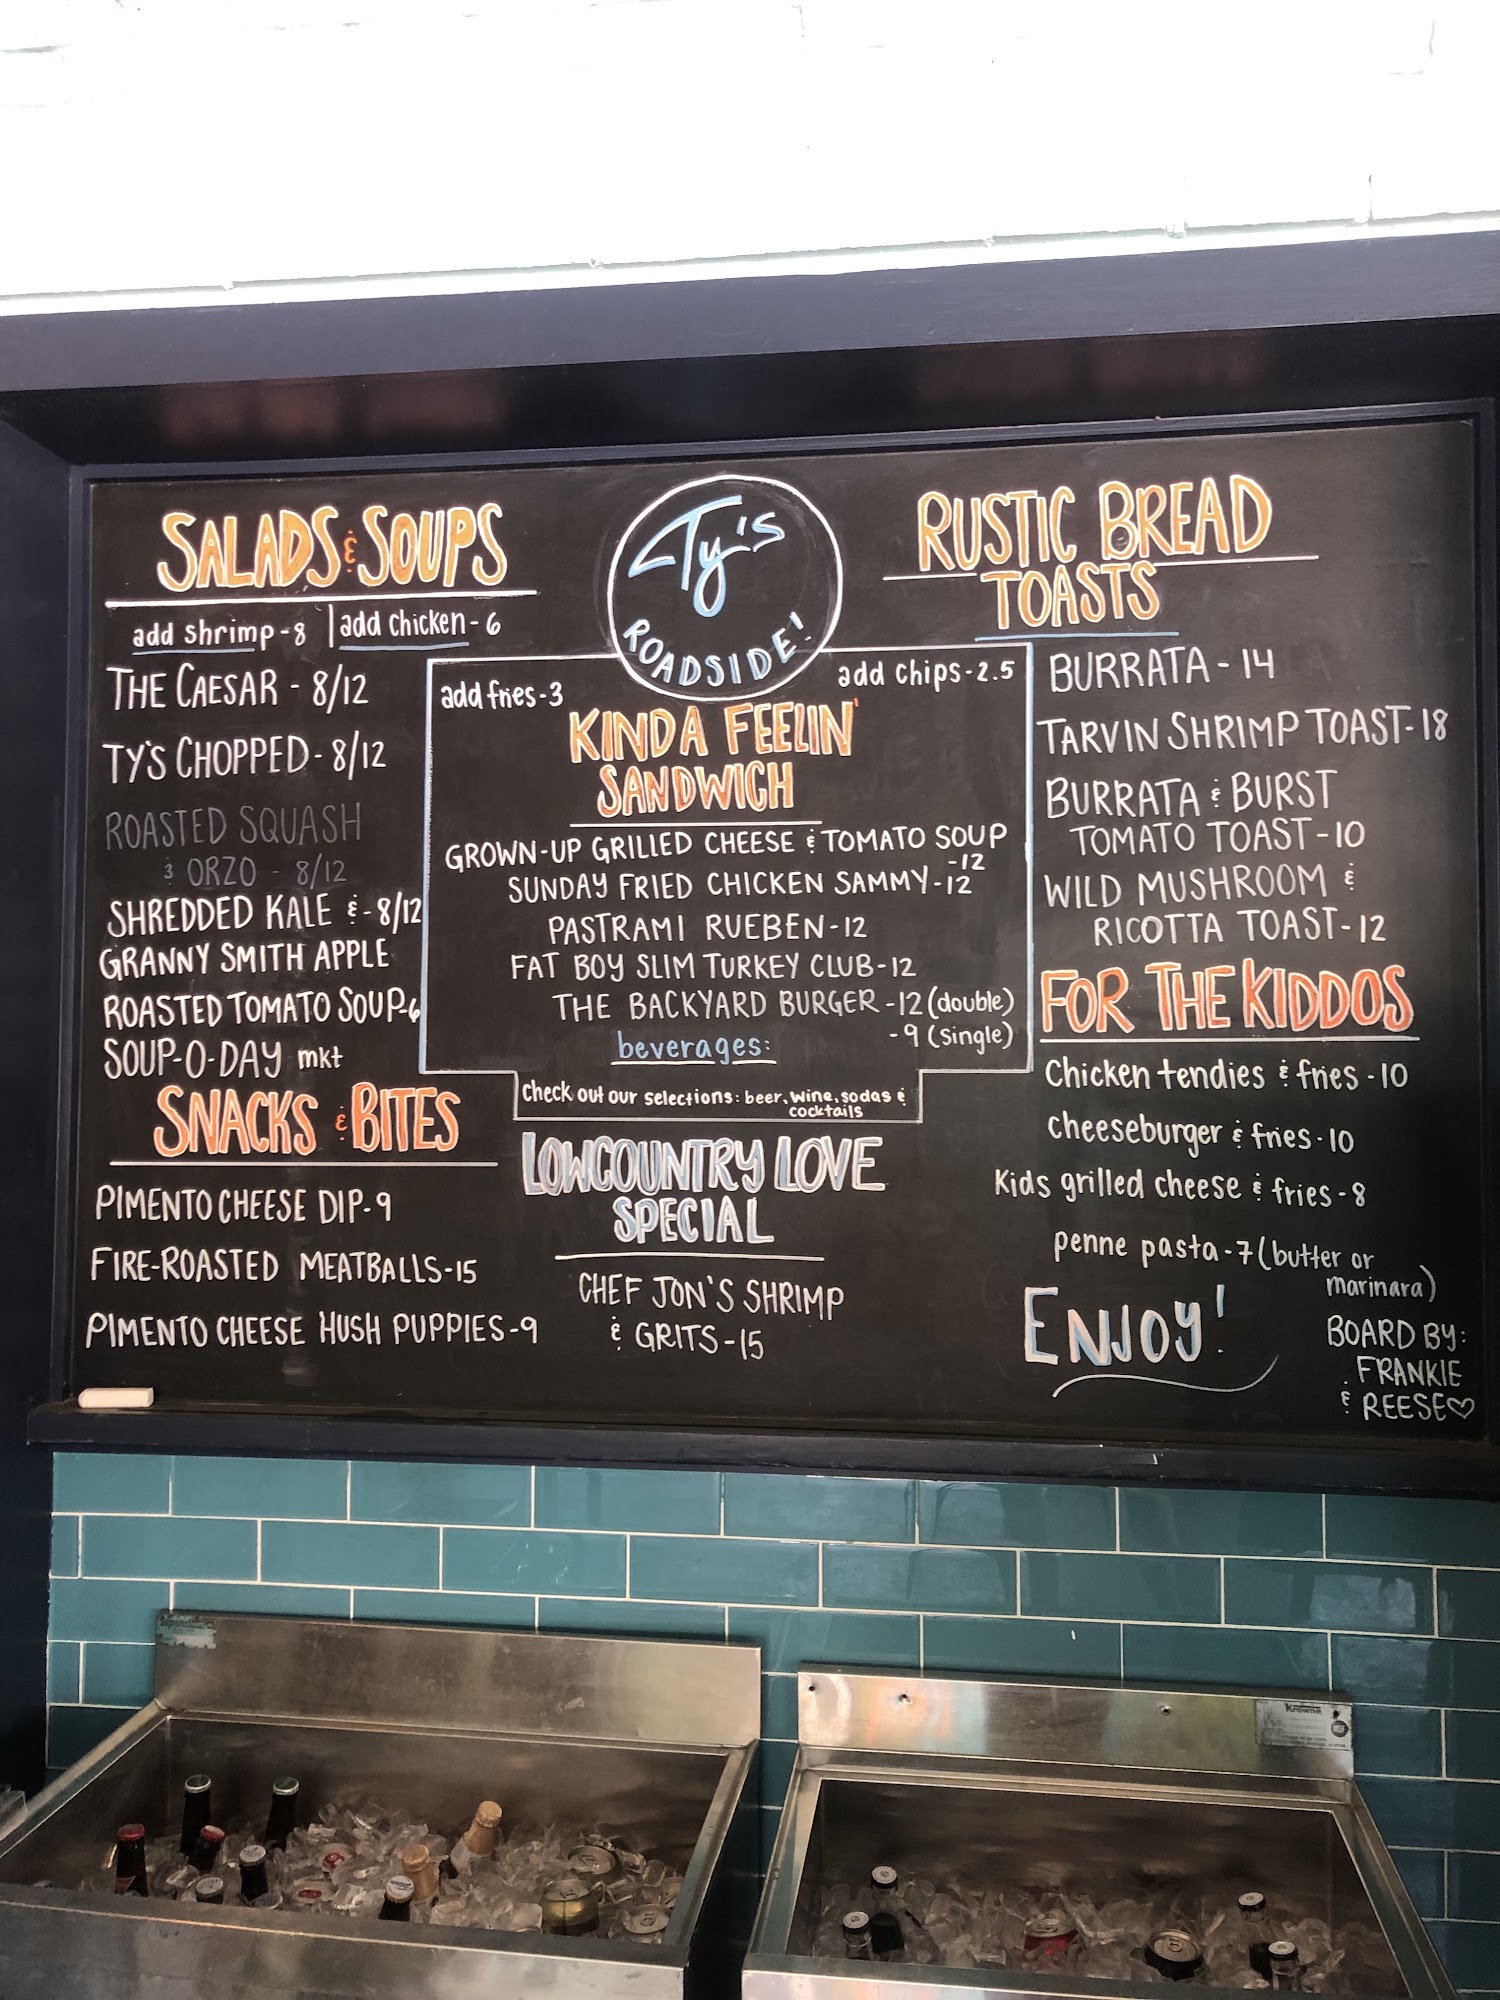 SALADS & SOUPS
add shrimp-8 | add chicken-6
THE CAESAR - 8/12
TY'S CHOPPED - 8/12
ROASTED SQUASH
& ORZO - 8/12
SHREDDED KALE & - 8/12
GRANNY SMITH APPLE
ROASTED TOMATO SOUP-6
SOUP-O-DAY mkt
SNACKS & BITES
PIMENTO CHEESE DIP-9
FIRE-ROASTED MEATBALLS-15
PIMENTO CHEESE HUSH PUPPIES-9
Ty's
ROADSIDE!
add fries-3
add chips-2.5
KINDA FEELIN'
SANDWICH
GROWN-UP GRILLED CHEESE & TOMATO SOUP
-12
SUNDAY FRIED CHICKEN SAMMY-12
PASTRAMI RUEBEN-12
FAT BOY SLIM TURKEY CLUB-12
THE BACKYARD BURGER-12 (double)
-9 (single)
beverages:
check out our selections: beer, wine, sodas &
cocktails
LOWCOUNTRY LOVE
SPECIAL
CHEF JON'S SHRIMP
& GRITS-15
RUSTIC BREAD
TOASTS
BURRATA-14
TARVIN SHRIMP TOAST-18
BURRATA & BURST
TOMATO TOAST-10
WILD MUSHROOM &
RICOTTA TOAST-12
FOR THE KIDDOS
Chicken tendies & fries-10
cheeseburger & fries-10
Kids grilled cheese & fries-8
penne pasta-7 (butter or
marinara)
ENJOY!
BOARD BY:
FRANKIE
& REESE♡
Krowne
NSF